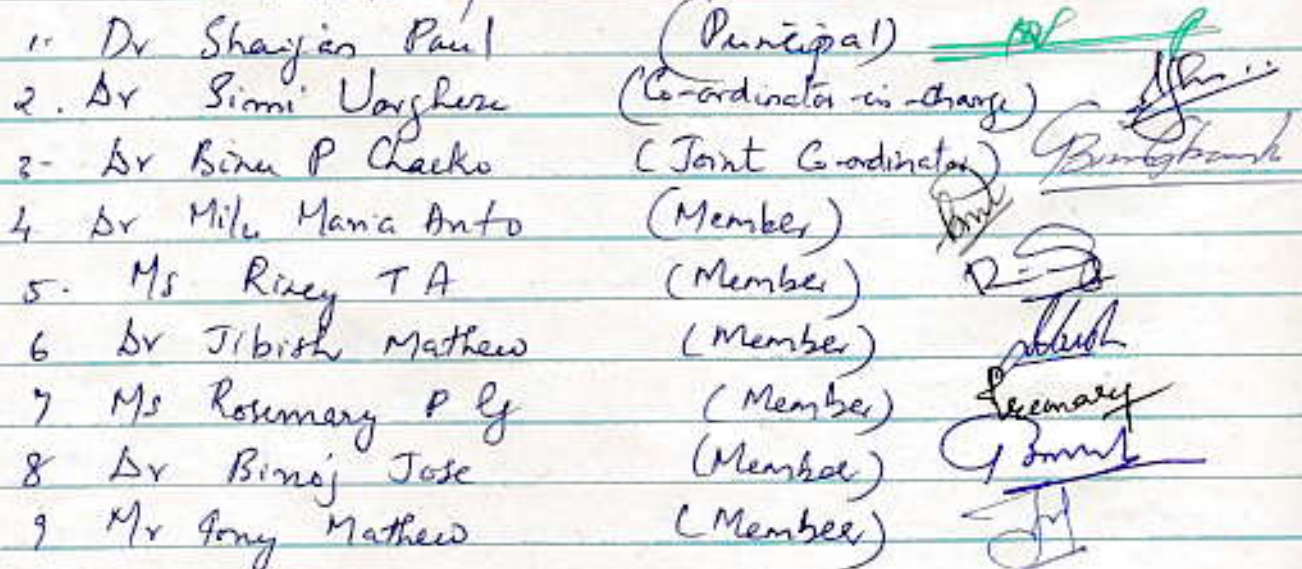 1. Dr Shaijan Paul (Principal)
2. Dr Simmi Varghese (Co-ordinator-in-Charge)
3- Dr Binu P Chacko (Joint Co-ordinator)
4 Dr Milu Maria Anto (Member)
5. Ms Rixey T A (Member)
6 Dr Jibish Mathew (Member)
7 Ms Rosemary P G (Member) Rosemary
8 Dr Binoj Jose (Member)
9 Mr Tony Mathew (Member)